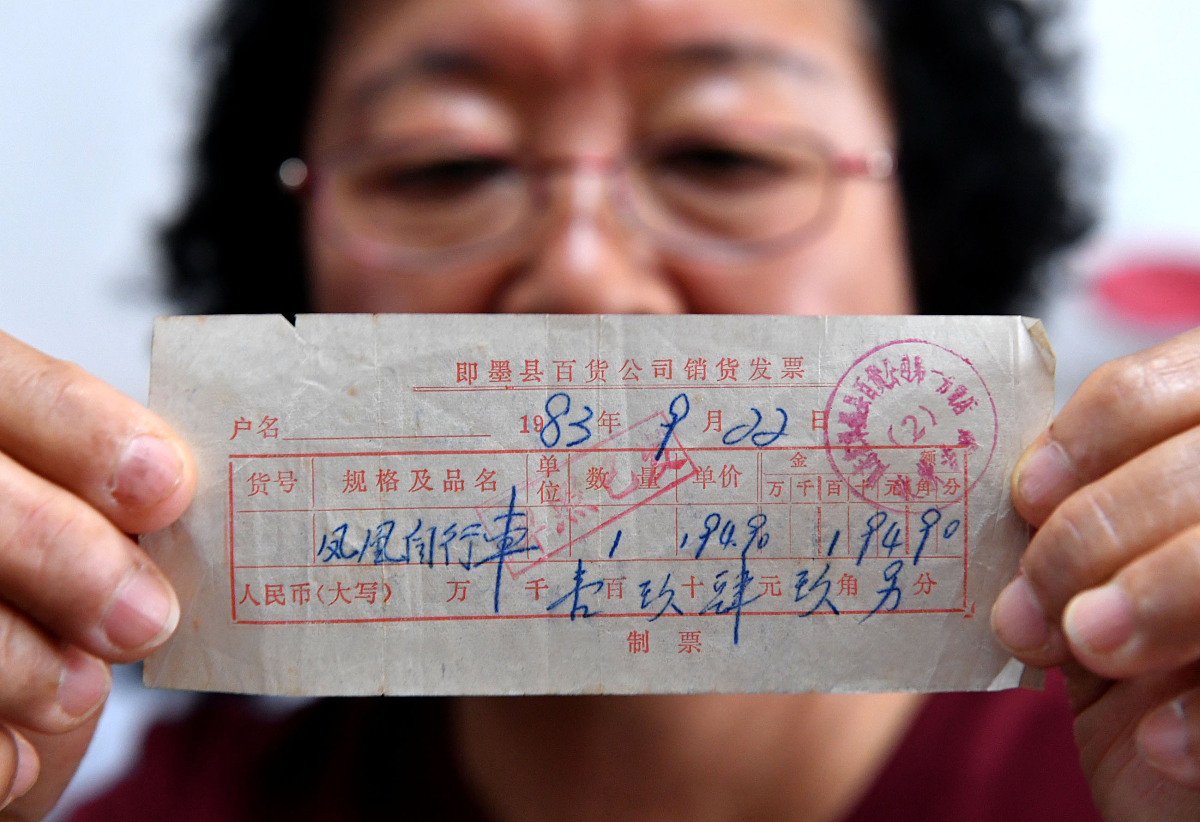 即墨县百货公司销货发票
户名 1983年9月22日
货号 规格及品名 单位 数量 单价 金额
万千百十元角分
凤凰自行車 1 194.90 1 94 90
人民币(大写) 万 千壹百玖十肆元玖角另分
制票
(2)